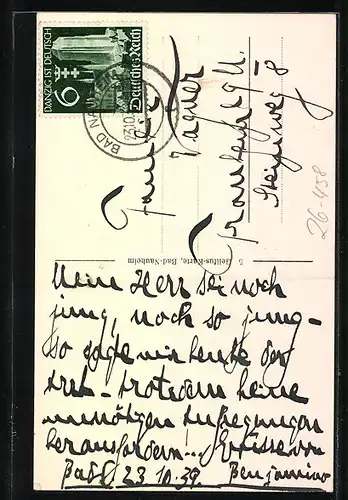 DANZIG IST DEUTSCH
6
Deutsches Reich
BAD NAUHEIM
23.10.
Familie
Wagner
Frankfurt a/M.
Steinweg 8
26-458
5 Gellfus-Karte, Bad-Nauheim
Mein Herz sei noch
jung, noch so jung -
so sagte mir heute der
Arzt - trotzdem keine
unnötigen Aufregungen
herausfordern!.. Grüsse von
23.10.39. Benjamino